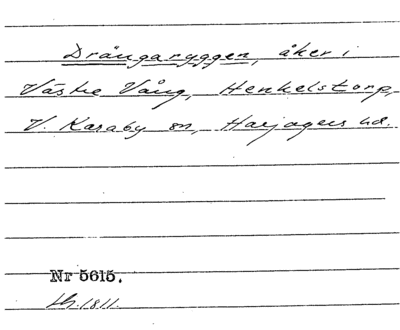 Drängaryggen, åker i
Västre Vång, Henkelstorp,
V. Karaby sn, Harjagers hd.
Nr 5615.
1811.